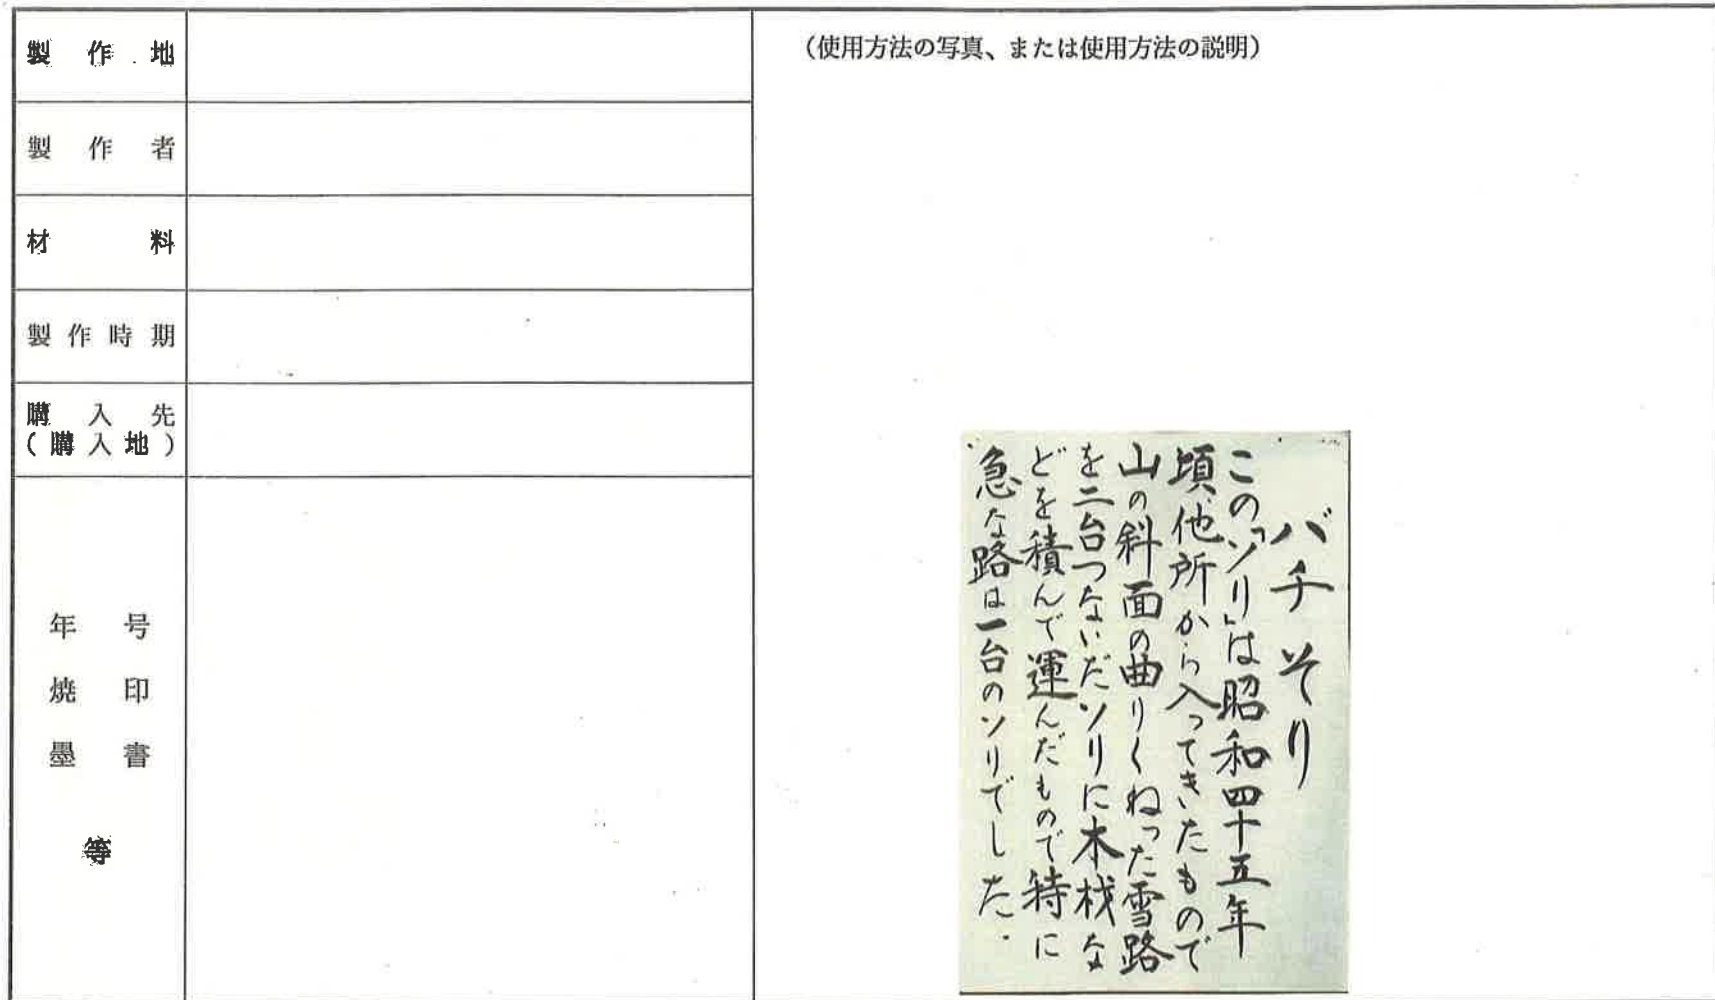 製作地
製作者
材料
製作時期
購入先
(購入地)
年号
焼印
墨書
等
(使用方法の写真、または使用方法の説明)
バチそり
この「ソリ」は昭和四十五年
頃、他所から入ってきたもので
山の斜面の曲りくねった雪路
を二台つないだソリに木材な
どを積んで運んだもので特に
急な路は一台のソリでした.